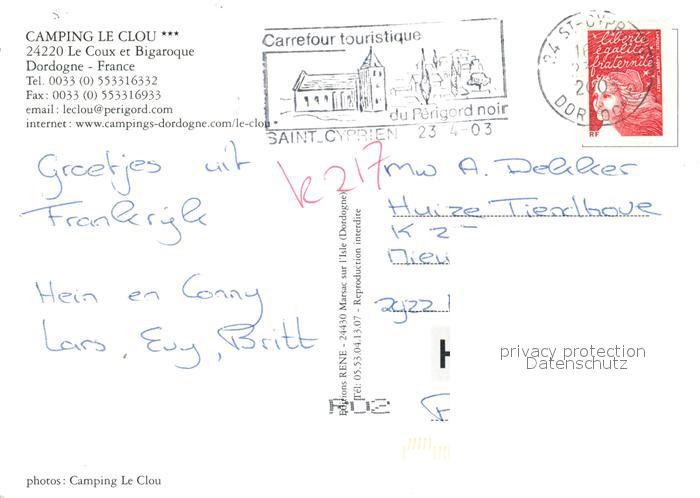 CAMPING LE CLOU ***
24220 Le Coux et Bigaroque
Dordogne - France
Tel. 0033 (0) 553316332
Fax: 0033 (0) 553316933
email: leclou@perigord.com
internet: www.campings-dordogne.com/le-clou *
Carrefour touristique
du Périgord noir
SAINT_CYPRIEN 23 4-03
24 ST-CYPR
DORDOGN
liberté
égalité
fraternité
RF
Groetjes uit
Frankrijk
Hein en Conny
Lars, Evy, Britt
k217
Mw A. Dekker
Huize Tiendhove
K 2
Nieu
Editions RENE - 24430 Marsac sur l'Isle (Dordogne)
Tél: 05.53.04.13.07 - Reproduction interdite
privacy protection
Datenschutz
photos: Camping Le Clou